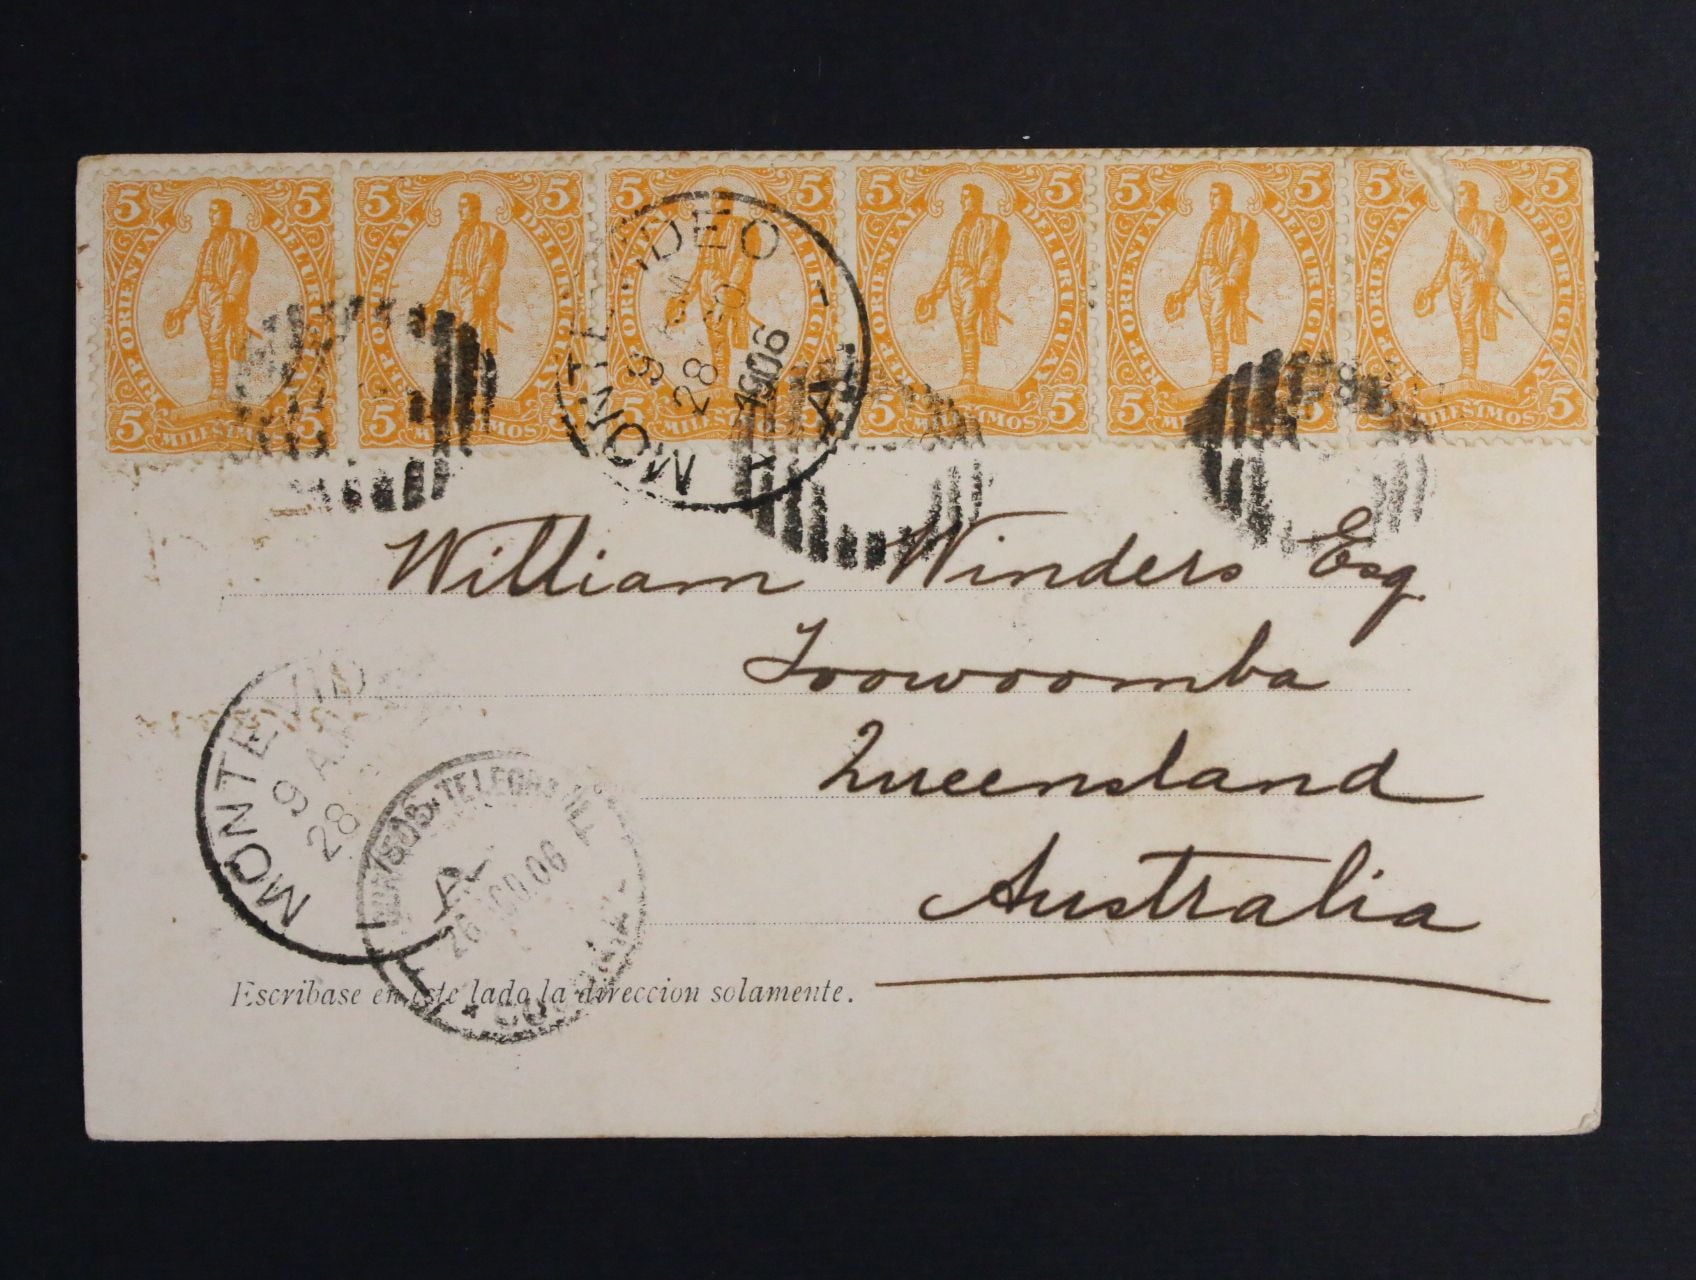 5 5 5 5 5 5 5 5 5 5 5 5
REP. ORIENTAL DEL URUGUAY REP. ORIENTAL DEL URUGUAY REP. ORIENTAL DEL URUGUAY REP. ORIENTAL DEL URUGUAY REP. ORIENTAL DEL URUGUAY REP. ORIENTAL DEL URUGUAY
5 5 5 5 5 5 5 5 5 5 5 5
MILESIMOS MILESIMOS MILESIMOS MILESIMOS MILESIMOS MILESIMOS
MONTEVIDEO
28
1906
A
William Winders Esq
Toowoomba
Queensland
Australia
MONTEVID
9 AM
28
A
26 AGO.06
Escribase en este lado la direccion solamente.